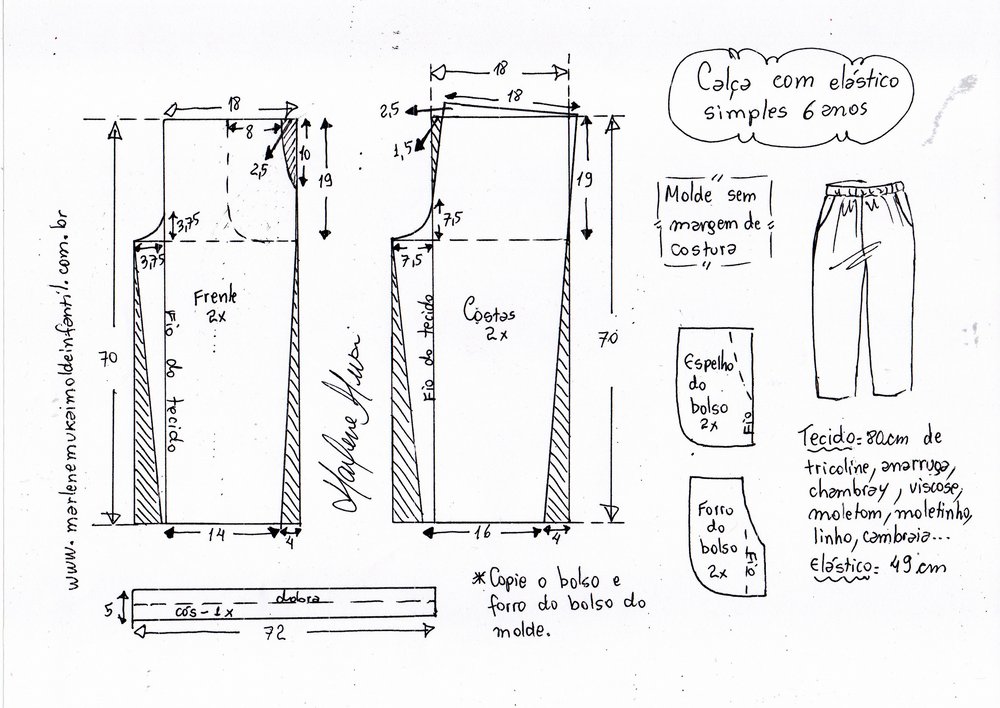 Calça com elástico
simples 6 anos
Molde sem
margem de
costura
18
8
2,5
10
19
3,75
3,75
Frente
2x
Fio do tecido
70
14
4
18
18
2,5
1,5
19
7,5
7,5
Costas
2x
Fio do tecido
70
16
4
www.marlenemukaimoldeinfantil.com.br
Espelho
do
bolso
2x
Fio
Forro
do
bolso
2x
Fio
Tecido = 80cm de
tricoline, anarruga,
chambray, viscose,
moletom, moletinho,
linho, cambraia...
Elástico = 49cm
5
dobra
cós - 1x
72
* Copie o bolso e
forro do bolso do
molde.